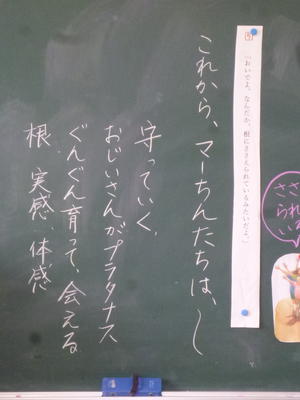 「おいでよ。なんだか、根にささえられているみたいだよ。」
これから、マーちんたちは、～
守っていく、
おじいさんがプラタナス
ぐんぐん育って、会える
根 実感、体感